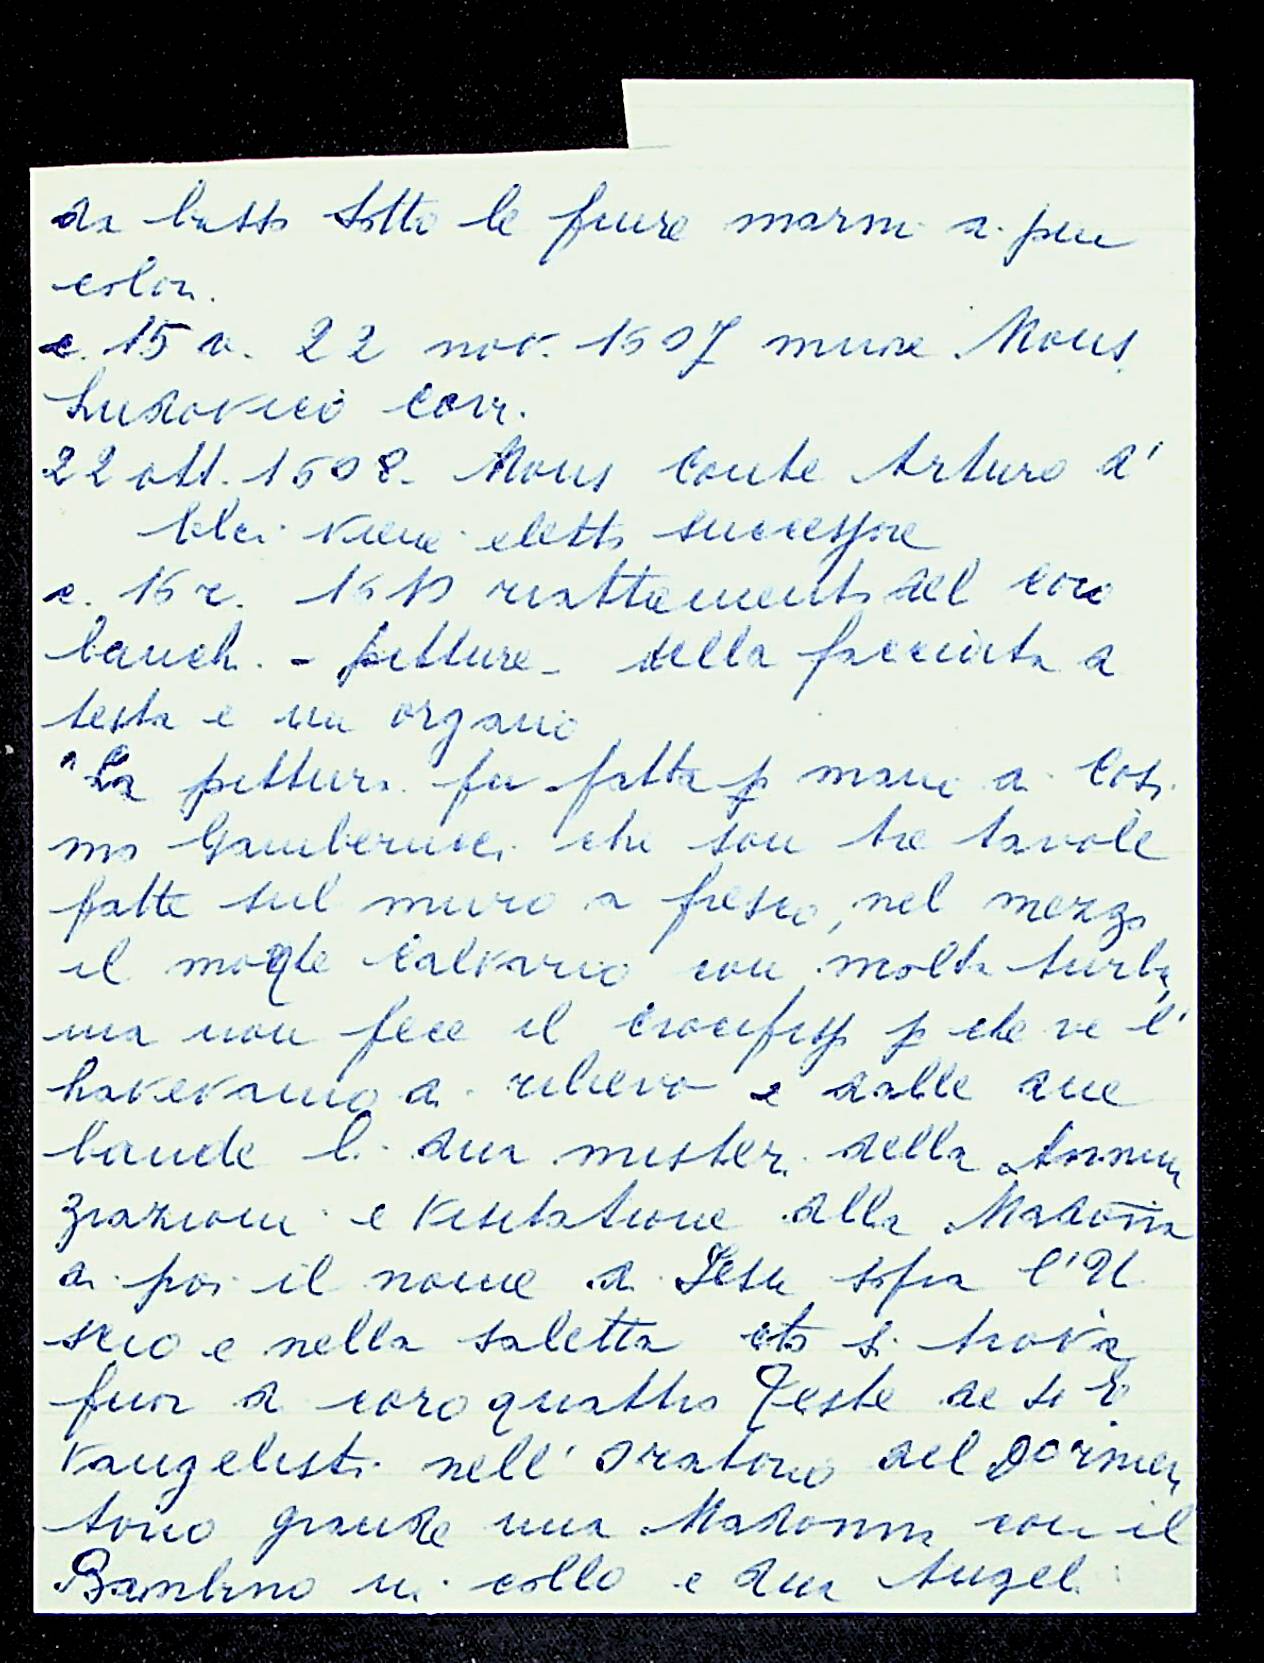 da basso sotto le fiure marmi di piu
colori.
c. 15 v. 22 nov. 1607 muore Mons
Ludovico Corr.
22 ott. 1608. Mons Conte Arturo d'
Elci viene eletto successore
c. 16 r. 1610 riattamento del coro
banchi - pitture - della facciata di
testa e un organo
"La pittura fu fatta p mano di Cosi
mo Gamberucci che son tre tavole
fatte sul muro a fresco, nel mezzo
il monte Calvario con molta turba,
ma non fece il Crocifisso p che ve l'
havevamo di rilievo e dalle due
bande li dua misteri della Annun
ziazioni e Visitatione della Madonna
di poi il nome di Jesu sopra l'U
scio e nella saletta che si trova
fuor di coro quattro Teste de S.ti E
vangelisti nell' Oratorio del Dormen
torio grande una Madonna con il
Bambino in collo e dua Angeli